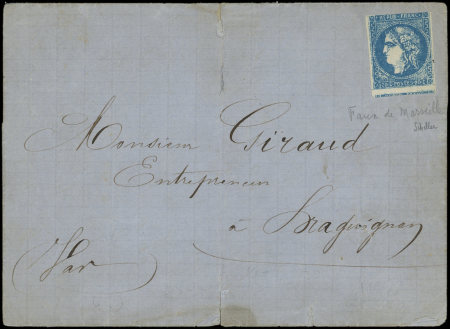 REPUB. FRANC.
Faux de Marseille
Monsieur Giraud
Entrepreneur
à Draguignan
Var